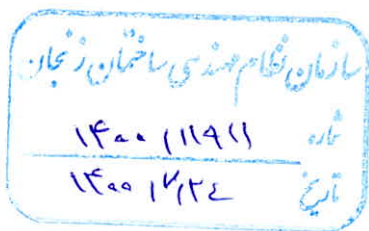 سازمان نظام مهندسی ساختمان زنجان
شماره ۱۴۰۰/۱۱۹۱۱
تاریخ ۱۴۰۰/۷/۲۴